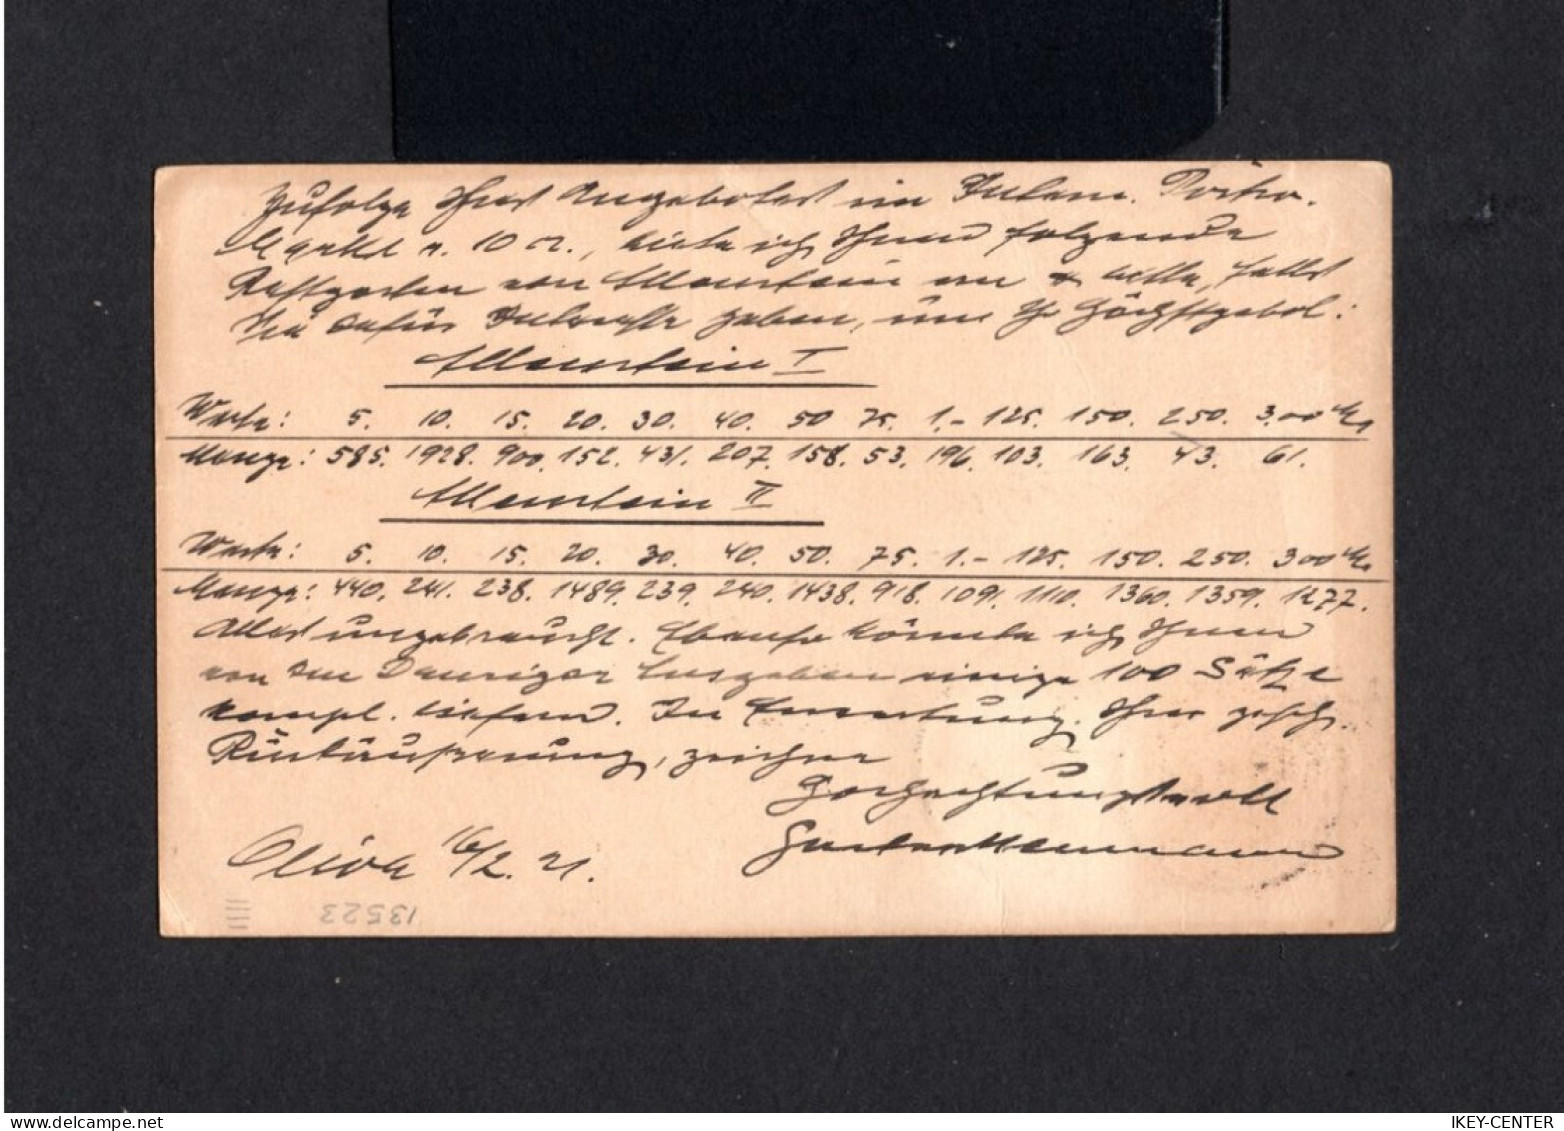 Zufolge Ihres Angebotes im Intern. Postw.
Markt v. 10 cr., biete ich Ihnen folgende
Restposten von Allenstein an & bitte, falls
Sie dafür Interesse haben, um Ihr Höchstgebot:
Allenstein I
Werte: 5. 10. 15. 20. 30. 40. 50 75. 1.- 125. 150. 250. 3.00 Mk
Menge: 585. 1928. 900. 152. 431. 207. 158. 53. 196. 103. 163. 43. 61.
Allenstein II
Werte: 5. 10. 15. 20. 30. 40. 50. 75. 1.- 125. 150. 250. 300 Mk
Menge: 440. 241. 238. 1489. 239. 240. 1438. 918. 1091. 1110. 1360. 1359. 1277.
Alles ungebraucht. Ebenso könnte ich Ihnen
von den Danziger Ausgaben einige 100 Sätze
kompl. liefern. In Erwartung Ihrer gesch.
Rückäußerung, zeichne
Hochachtungsvoll
Oliva 16/2. 21.
13523
IKEY-CENTER